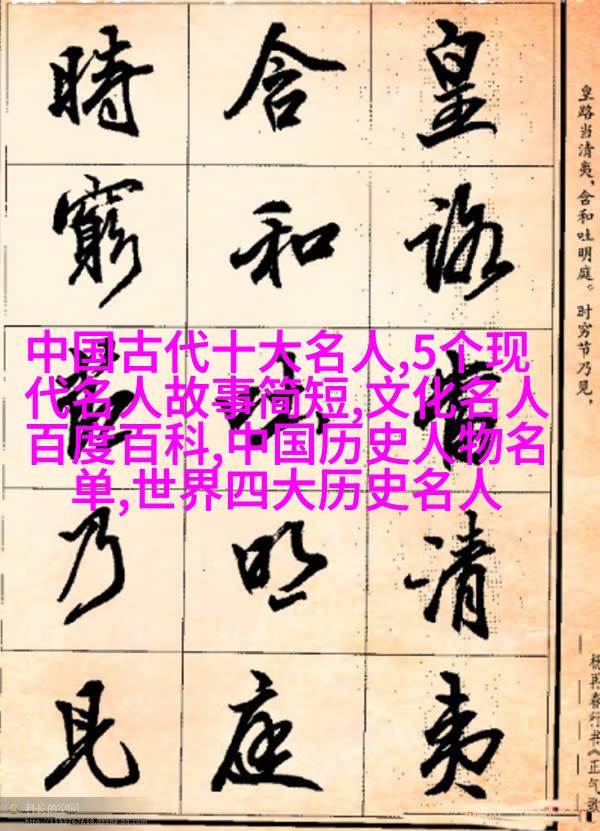 皇路當清夷
含和吐明庭
時窮節乃見
皇路当清夷，含和吐明庭。时穷节乃见，
杨再春行书《正气歌
中国古代十大名人,5个现
代名人故事简短,文化名人
百度百科,中国历史人物名
单,世界四大历史名人
科长的空间